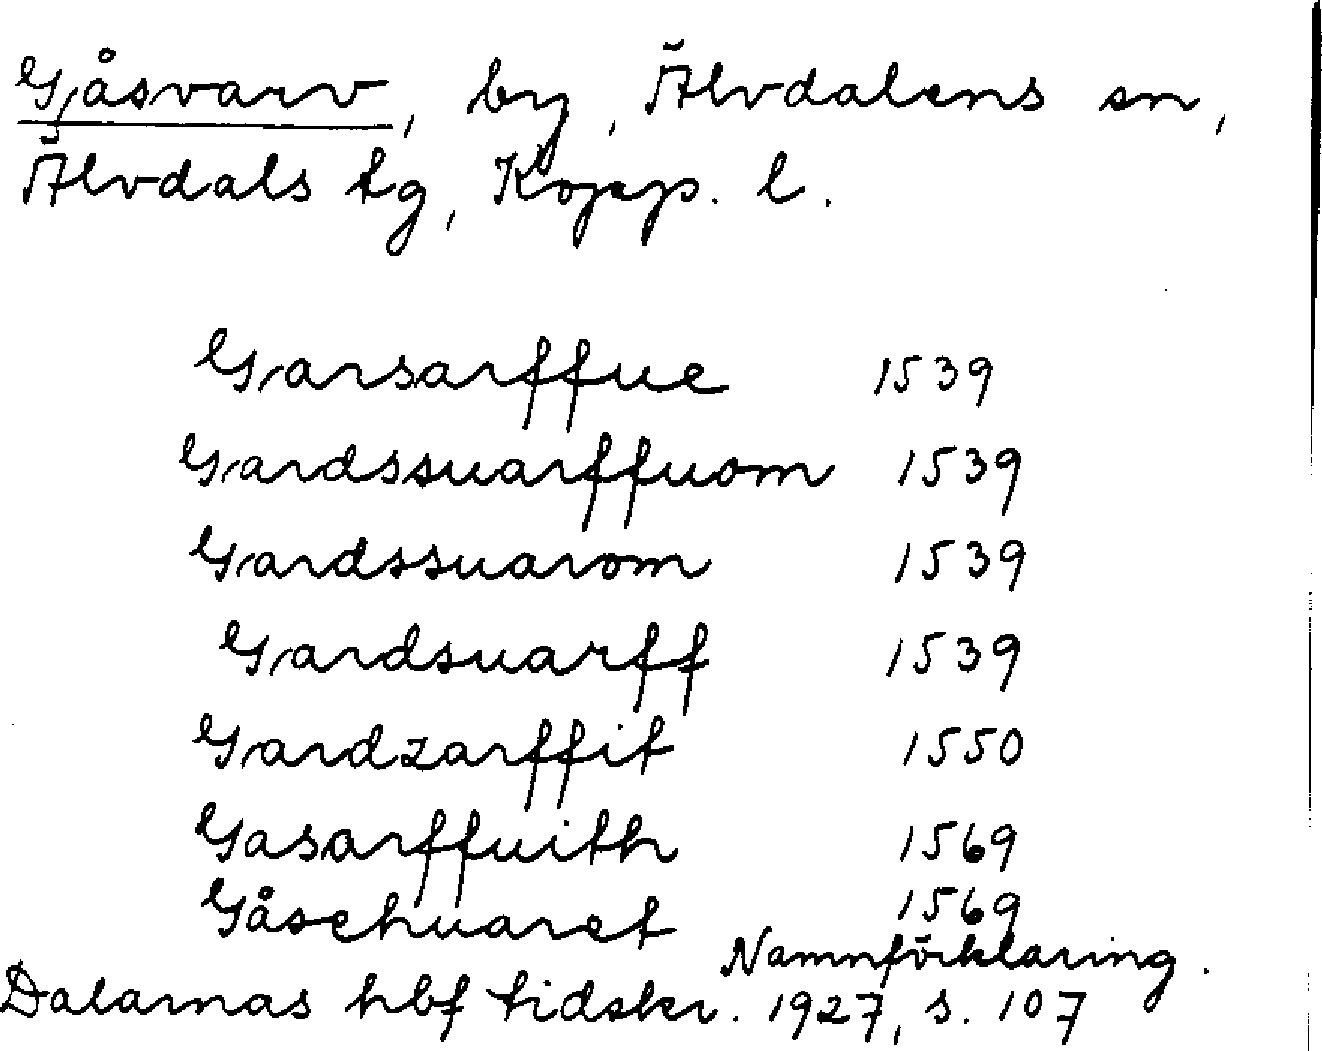 Gåsvarv, by, Älvdalens sn,
Älvdals tg, Kopp. l.
Garsarffue 1539
Gardssuarffuom 1539
Gardssuarom 1539
Gardsuarff 1539
Gardzarffit 1550
Gasarffuith 1569
Gåsehuaret 1569
Namnförklaring.
Dalarnas hbf tidskr. 1927, s. 107